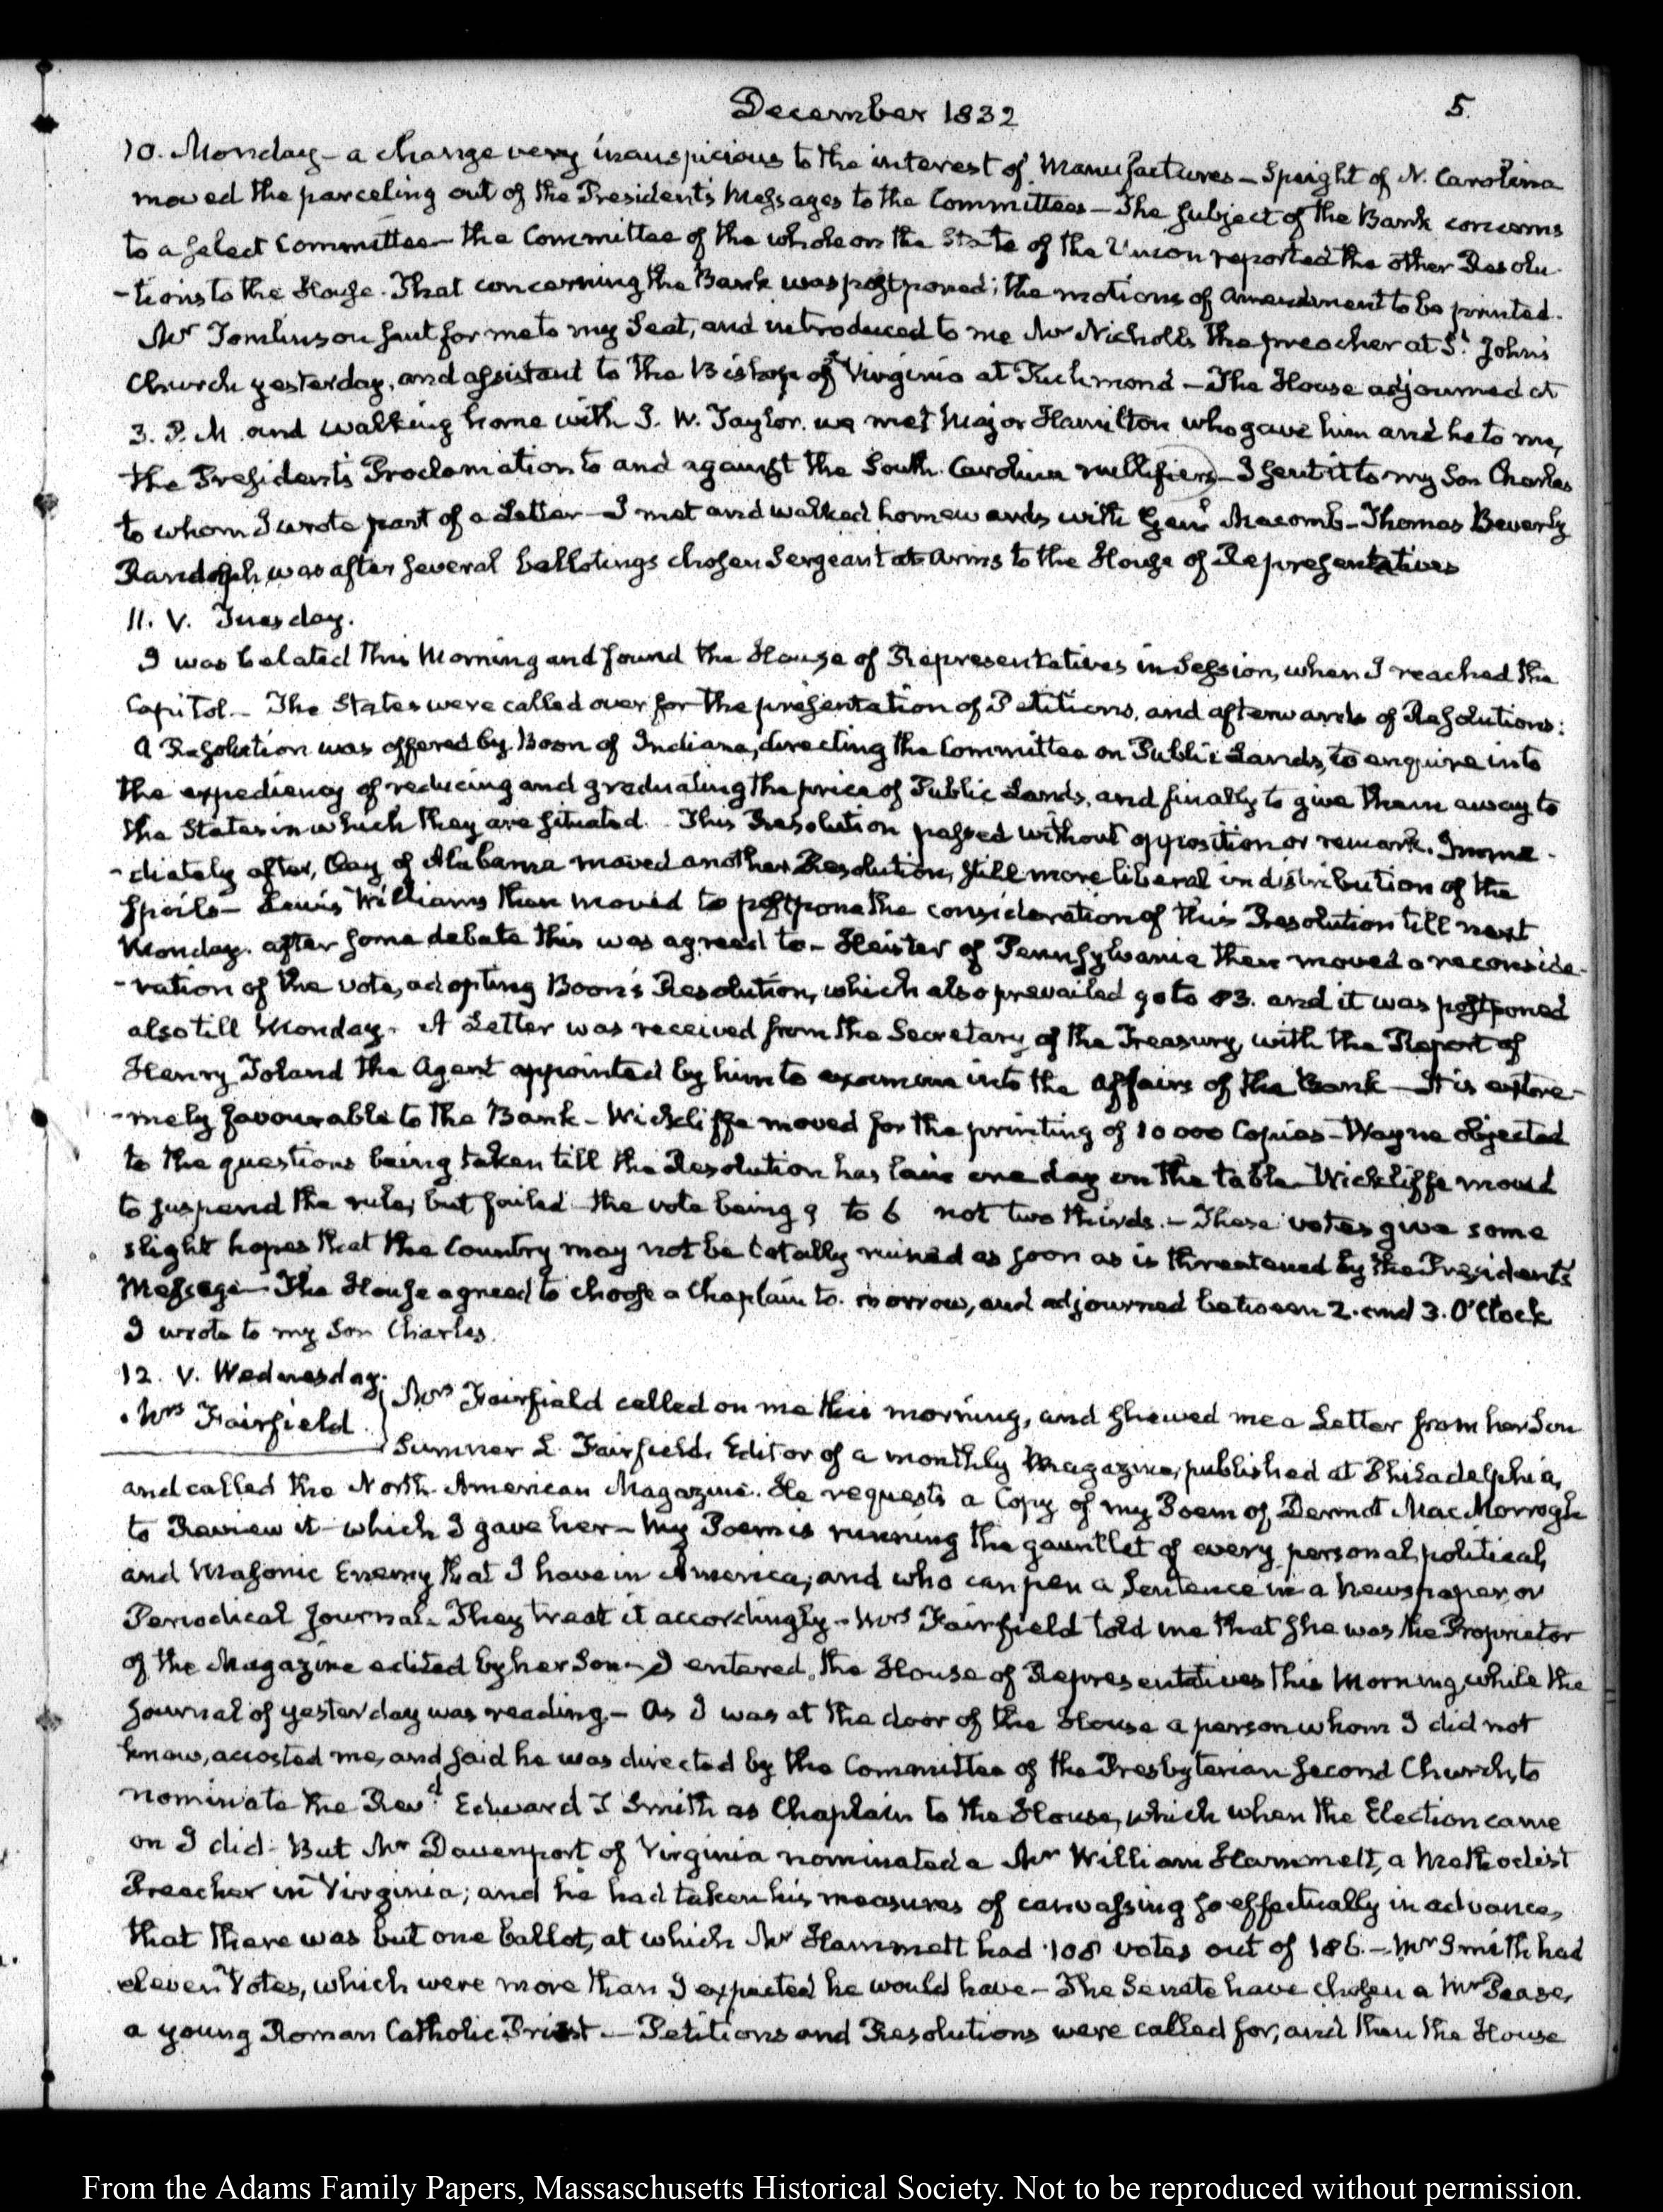 December 1832
5.
10. Monday – a change very inauspicious to the interest of Manufactures – Speight of N. Carolina
moved the parceling out of the President's Messages to the Committees – The subject of the Bank concerns
to a select Committee – the Committee of the whole on the State of the Union reported the other Resolu-
-tions to the House. That concerning the Bank was postponed; the motions of amendment to be printed.
Mr Tomlinson sent for me to my Seat, and introduced to me Mr Nicholls the preacher at St. John's
Church yesterday, and assistant to the Bishop of Virginia at Richmond – The House adjourned at
3. P. M. and walking home with J. W. Taylor. we met Major Hamilton who gave him and he to me,
the President's Proclamation to and against the South Carolina nullifiers – I sent it to my Son Charles
to whom I wrote part of a Letter – I met and walked homewards with Genl Macomb – Thomas Beverly
Randolph, was after several ballotings chosen Sergeant at arms to the House of Representatives
11. V. Tuesday.
I was belated this Morning and found the House of Representatives in Session, when I reached the
Capitol – The States were called over for the presentation of Petitions, and afterwards of Resolutions:
A Resolution was offered by Boon of Indiana, directing the Committee on Public Lands, to enquire into
the expediency of reducing and graduating the price of Public Lands, and finally to give them away to
the States in which they are situated. This Resolution passed without opposition or remark. Imme-
-diately after, Clay of Alabama moved another Resolution, still more liberal in distribution of the
spoils – Lewis Williams then moved to postpone the consideration of this Resolution till next
Monday. after some debate this was agreed to – Heister of Pennsylvania then moved a reconside-
-ration of the vote, adopting Boon's Resolution, which also prevailed 90 to 83. and it was postponed
also till Monday. A Letter was received from the Secretary of the Treasury, with the Report of
Henry Toland the Agent appointed by him to examine into the affairs of the Bank – It is extre-
-mely favourable to the Bank – Wickliffe moved for the printing of 10 000 Copies – Wayne objected
to the questions being taken till the Resolution has lain one day on the table Wickliffe moved
to suspend the rule, but failed the vote being 9 to 6 not two thirds. – These votes give some
slight hopes that the Country may not be totally ruined as soon as is threatened by the President's
Message – The House agreed to choose a Chaplain to morrow, and adjourned between 2. and 3. O'Clock
I wrote to my Son Charles.
12. V. Wednesday.
Mrs Fairfield
Mrs Fairfield called on me this morning, and shewed me a Letter from her Son
Sumner L. Fairfield, Editor of a monthly Magazine, published at Philadelphia,
and called the North American Magazine. He requests a Copy of my Poem of Dermot MacMorrogh
to Review it which I gave her – My Poem is running the gauntlet of every personal, political,
and Masonic Enemy that I have in America; and who can pen a Sentence in a Newspaper, or
Periodical Journal. They treat it accordingly – Mrs Fairfield told me that she was the Proprietor
of the Magazine edited by her Son – I entered the House of Representatives this Morning, while the
Journal of yesterday was reading – As I was at the door of the House a person whom I did not
know, accosted me, and said he was directed by the Committee of the Presbyterian second Church, to
nominate the Revd. Edward J Smith as Chaplain to the House, which when the Election came
on I did. But Mr Davenport of Virginia nominated a Mr William Hammett, a Methodist
Preacher in Virginia; and he had taken his measures of canvassing so effectually in advance,
that there was but one ballot, at which Mr Hammett had 108 votes out of 186. – Mr Smith had
eleven Votes, which were more than I expected he would have – The Senate have chosen a Mr Pease,
a young Roman Catholic Priest. – Petitions and Resolutions were called for, and then the House
From the Adams Family Papers, Massachusetts Historical Society. Not to be reproduced without permission.